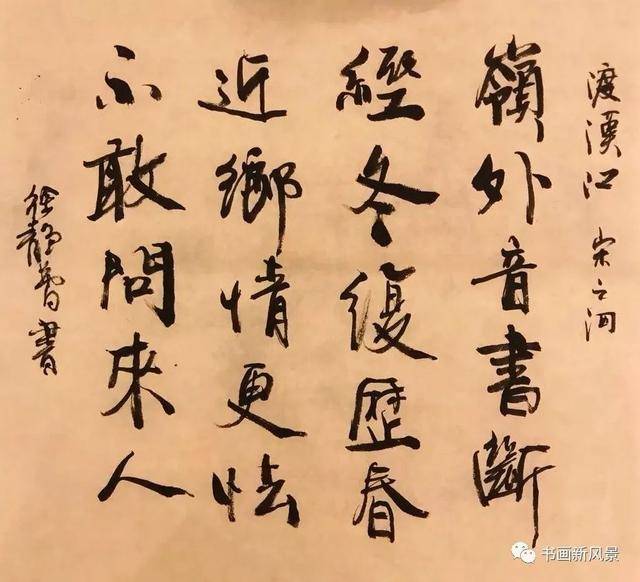 渡漢江 宋之問
嶺外音書斷
經冬復歷春
近鄉情更怯
不敢問來人
徐靜書
书画新风景